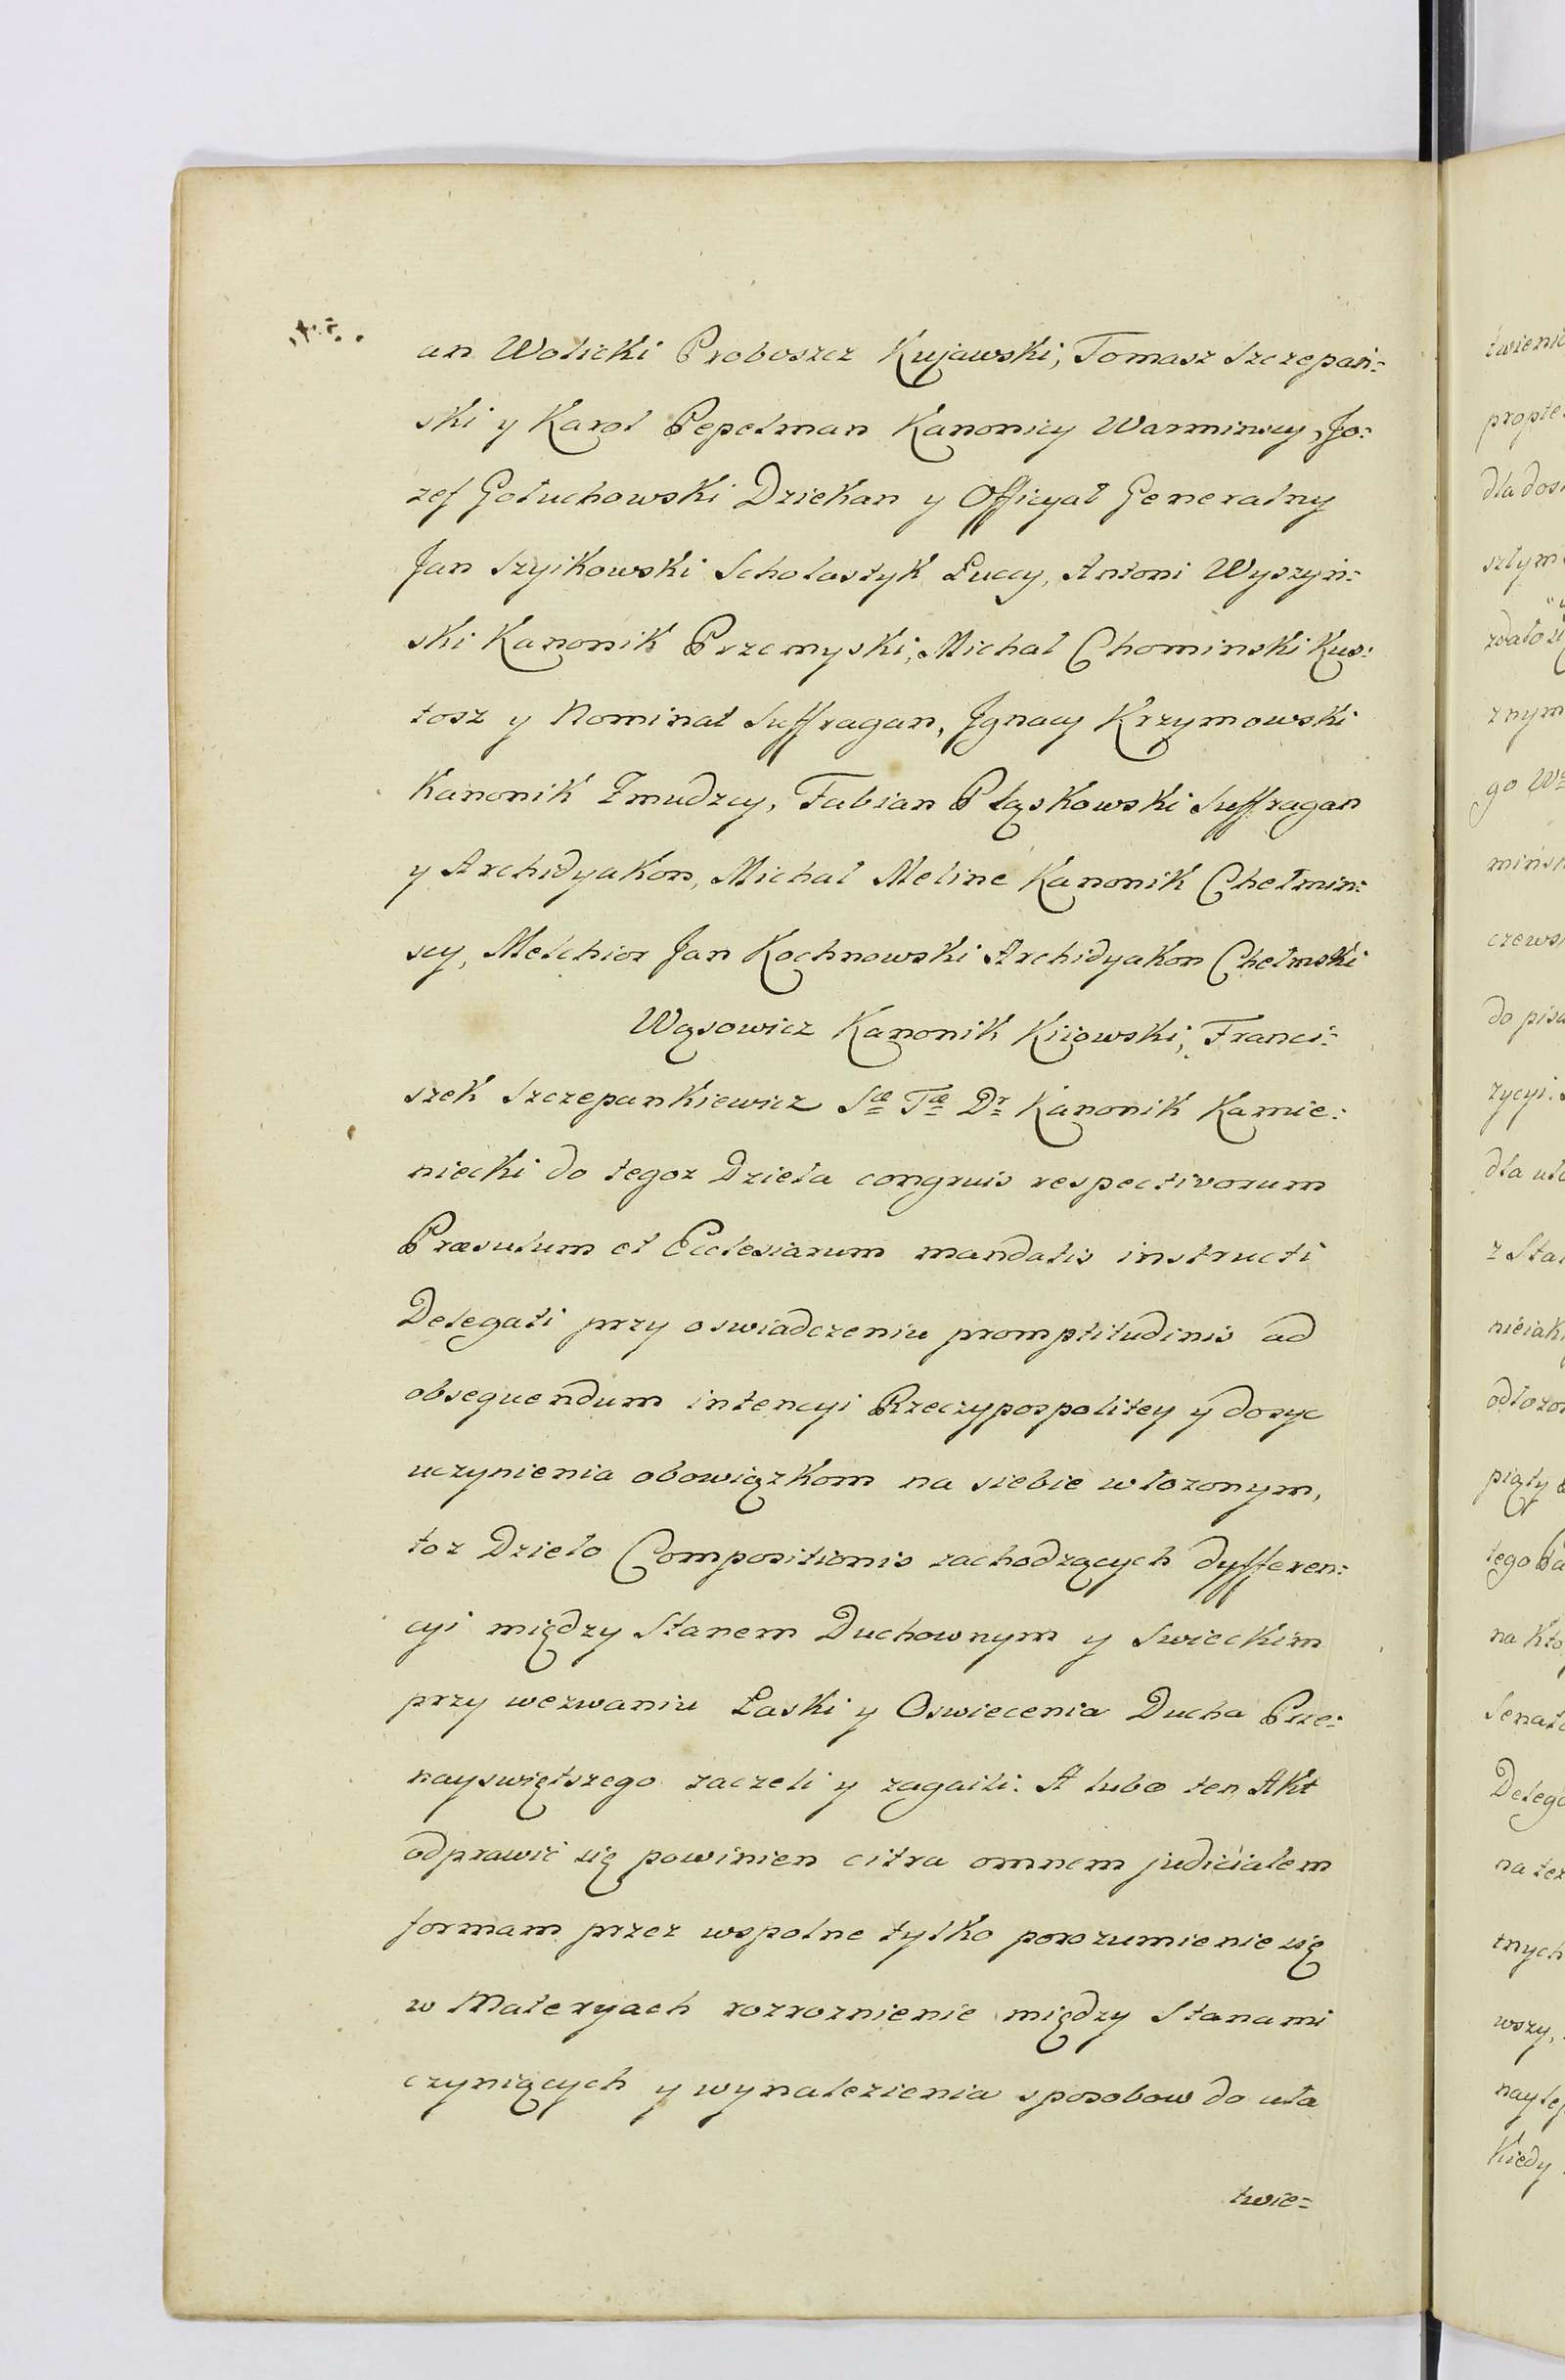 an Wolicki Proboszcz Kujawski, Tomasz Szczepań:
ski y Karol Pepelman Kanonicy Warminscy, Jo:
zef Gołuchowski Dziekan y Officyał Generalny
Jan Szyikowski Scholastyk Łuccy, Antoni Wyszyń:
ski Kanonik Przemyski, Michał Chominski Kus:
tosz y Nominat Suffragan, Jgnacy Krzymowski
Kanonik Zmudzcy, Fabian Pląskowski Suffragan
y Archidyakon, Michał Meline Kanonik Chełmin:
scy, Melchior Jan Kochnowski Archidyakon Chełmski
Wąsowicz Kanonik Kiiowski, Franci:
szek Szczepankiewicz Sæ Tæ Dr Kanonik Kamie:
niecki do tegoz Dzieła congruis respectivorum
Præsulum et Ecclesiarum mandatis instructi
Delegati przy oswiadczeniu promptitudinis ad
obsequendum intencyi Rzeczypospolitey y dosyc
uczynienia obowiązkom na siebie włozonym,
toz Dzieło Compositionis zachodzących dyfferen:
cyi między Stanem Duchownym y Swieckim
przy wezwaniu Łaski y Oswiecenia Ducha Prze:
nayswiętszego zaczeli y zagaili. A lubo ten Akt
odprawić się powinien citra omnem judicialem
formam przez wspolne tylko porozumienie się
w Materyach rozroznienie między Stanami
czyniących y wynalezienia sposobow do uła
twie=